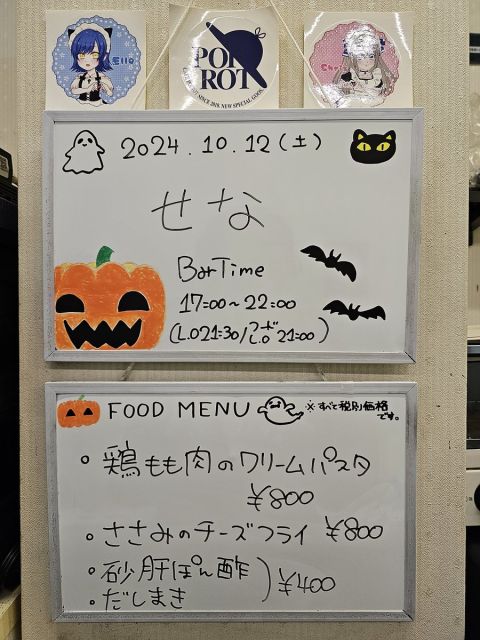 Ello
POP
ROT
SINCE 2018 NEW SPECIAL GOODS
2024.10.12(土)
せな
BarTime
17:00~22:00
(L.O21:30/フードL.O 21:00)
FOOD MENU ※すべて税別価格
です。
。鶏もも肉のクリームパスタ
¥800
。ささみのチーズフライ ¥800
。砂肝ぽん酢
。だしまき ) ¥400